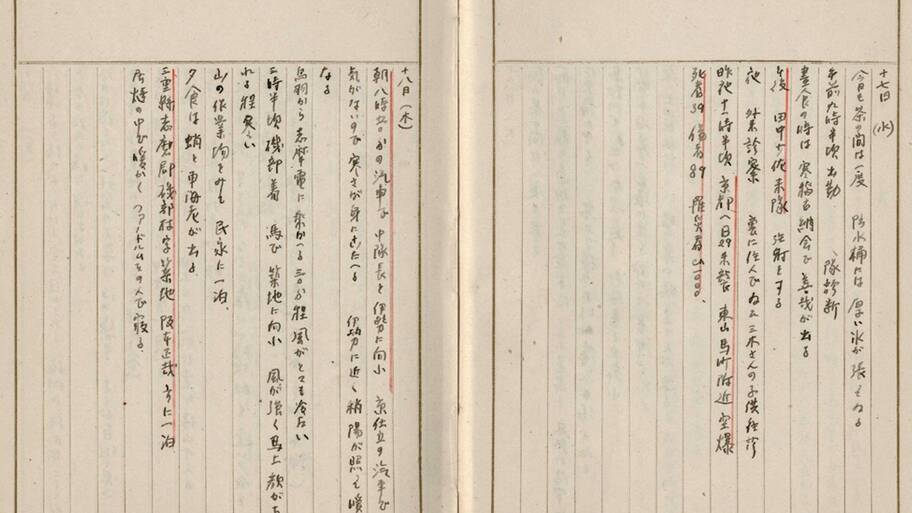 十七日 (水)
今日も茶の間は一度 防水桶には厚い氷が張てゐる
午前九時半頃 出勤 隊診断
昼食の時は寒稽古納会で善哉が出る
午後 田中少佐来隊 注射をする
夜 外来診察 裏に住んでゐる三木さんの子供往診
昨夜十一時半頃 京都へB29来襲 東山馬町附近空爆
死者39 傷者89 罹災者
十八日 (木)
朝八時 分の汽車で中隊長と伊勢に向ふ 京仕立の汽車で
気がないので寒さが身にこたへる 伊勢に近く稍陽が照て暖
なる
鳥羽から志摩電に乗かへる 三十分程 風がとても冷たい
二時半頃 磯部着 馬で築地に向ふ 風が強く馬上顔が
れる程寒い
山の作業場をみて 民家に一泊
夕食は蛸と車海老が出る
三重縣志摩郡磯部村字築地 阪本正哉方に一泊
炬燵の中で暖かく の人で寝る